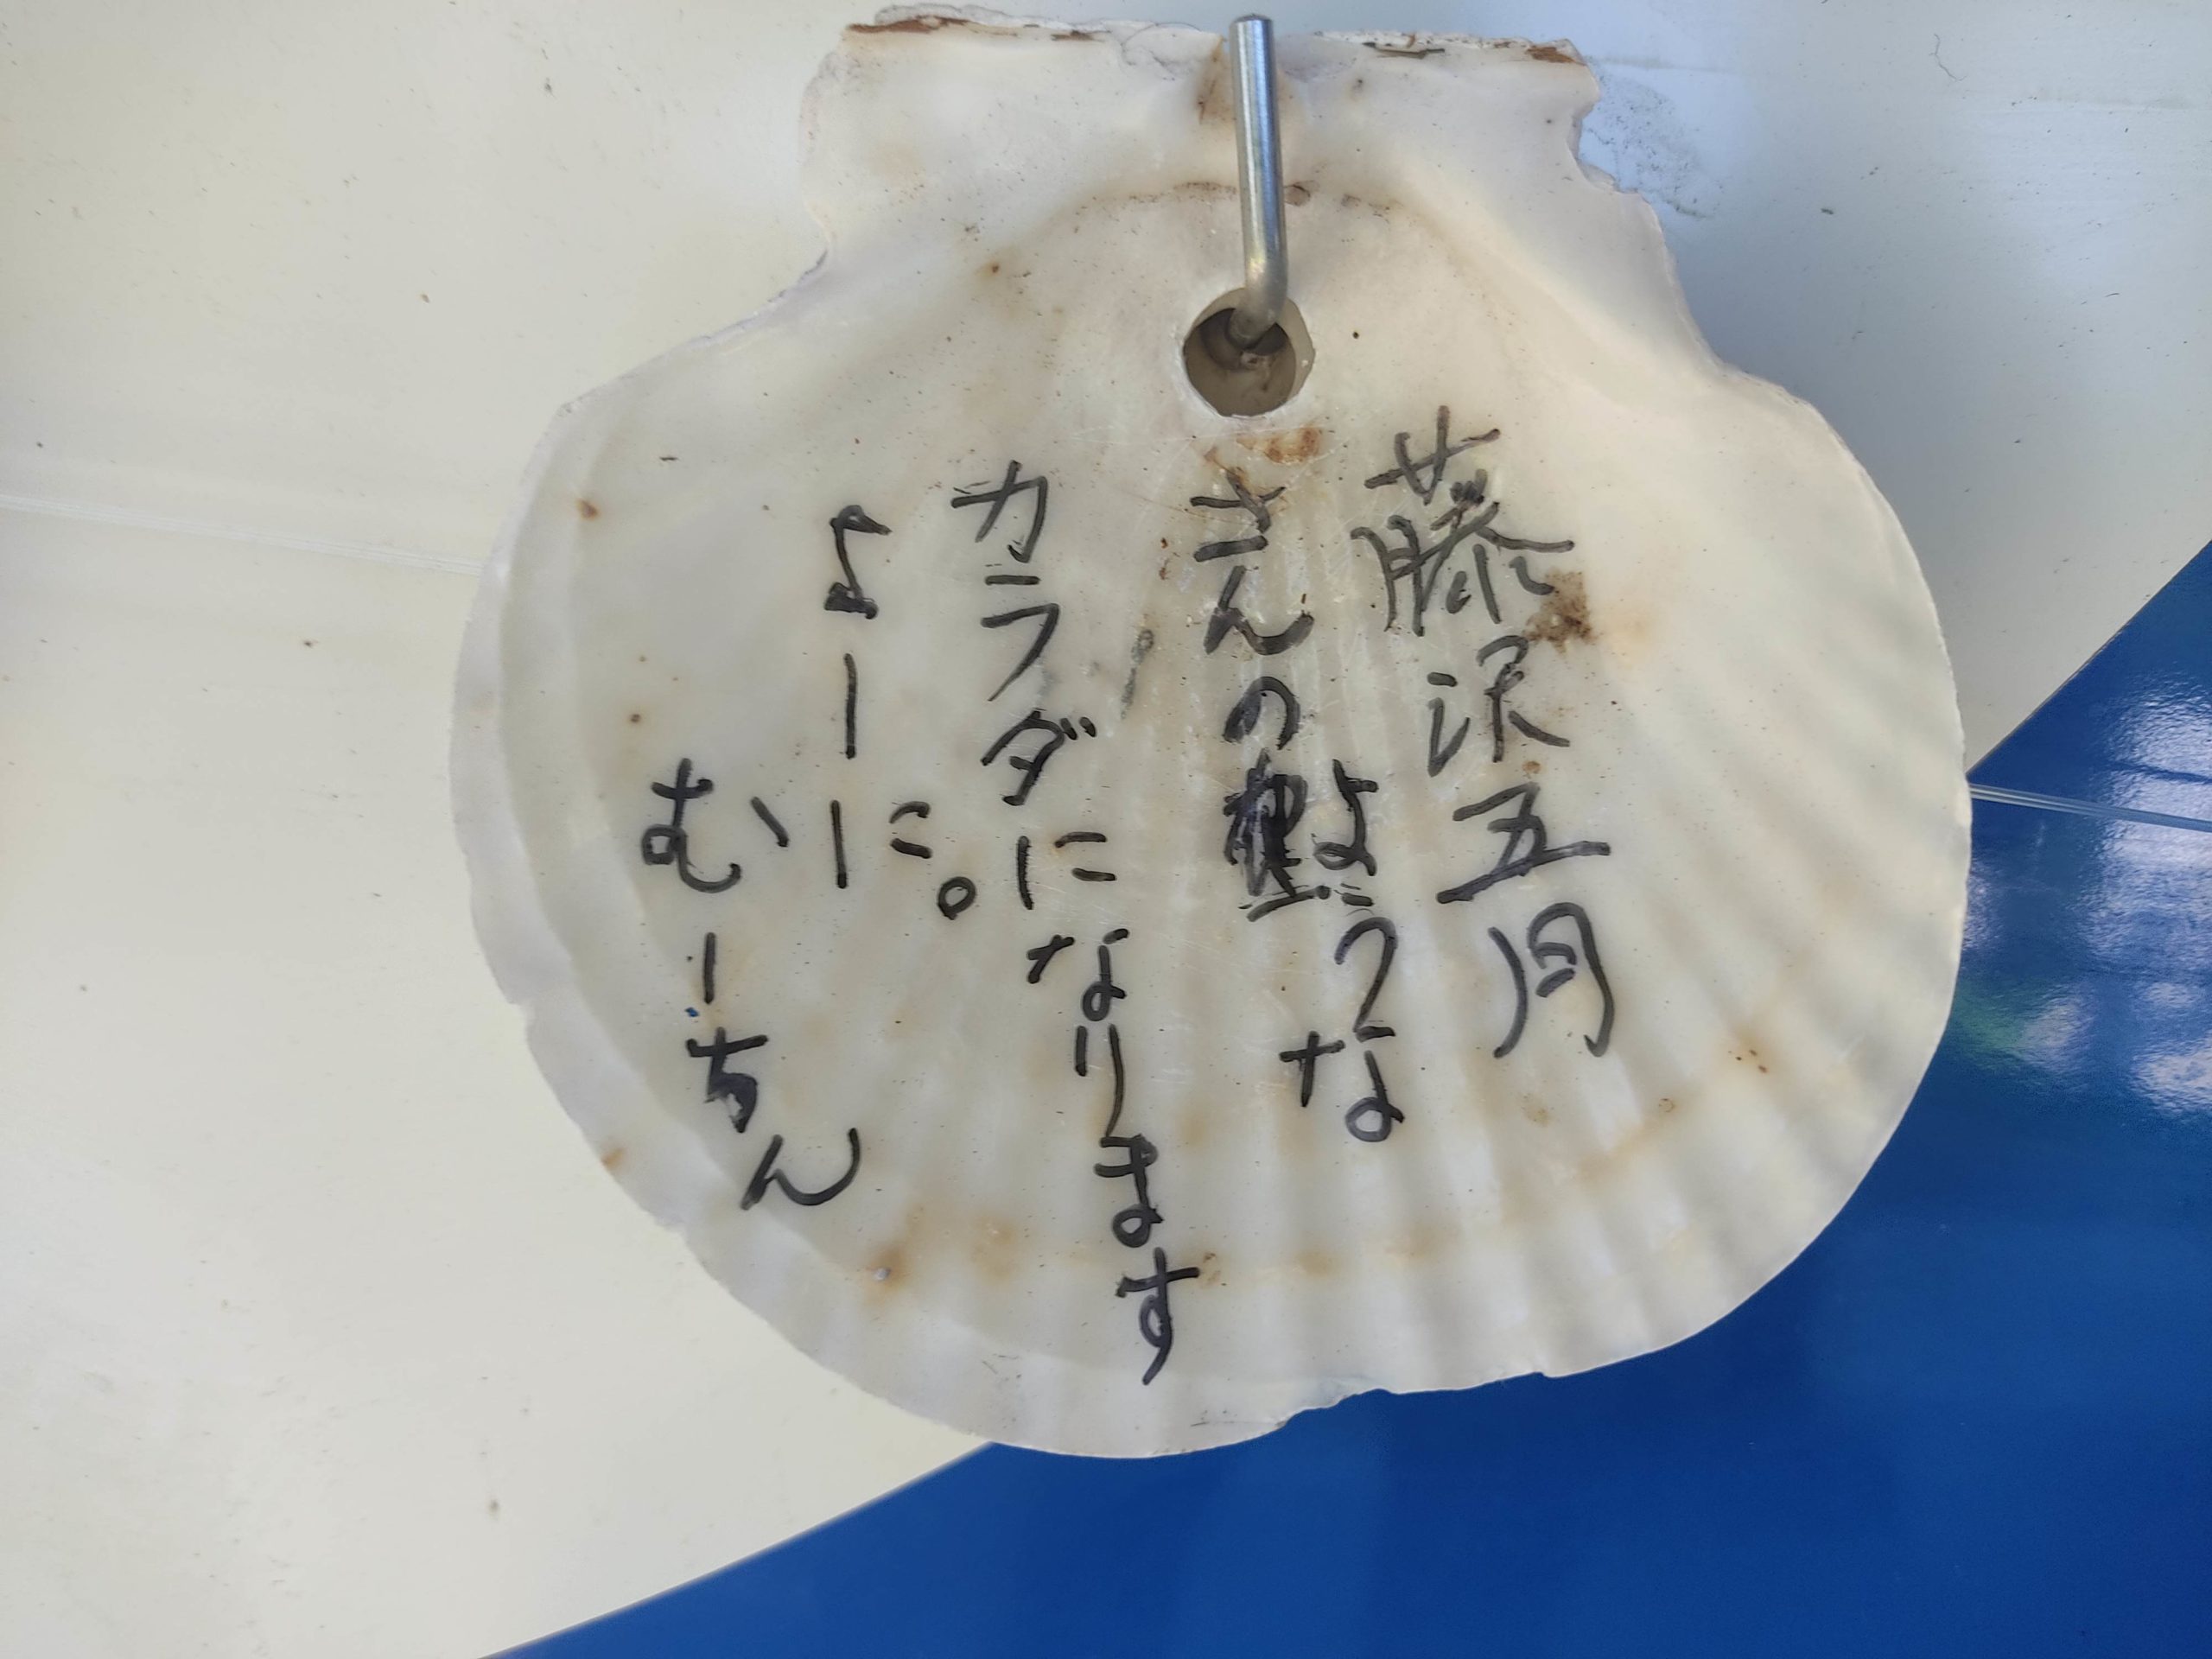 藤沢五月
さんのような
カラダになります
よーーに。
むーちん